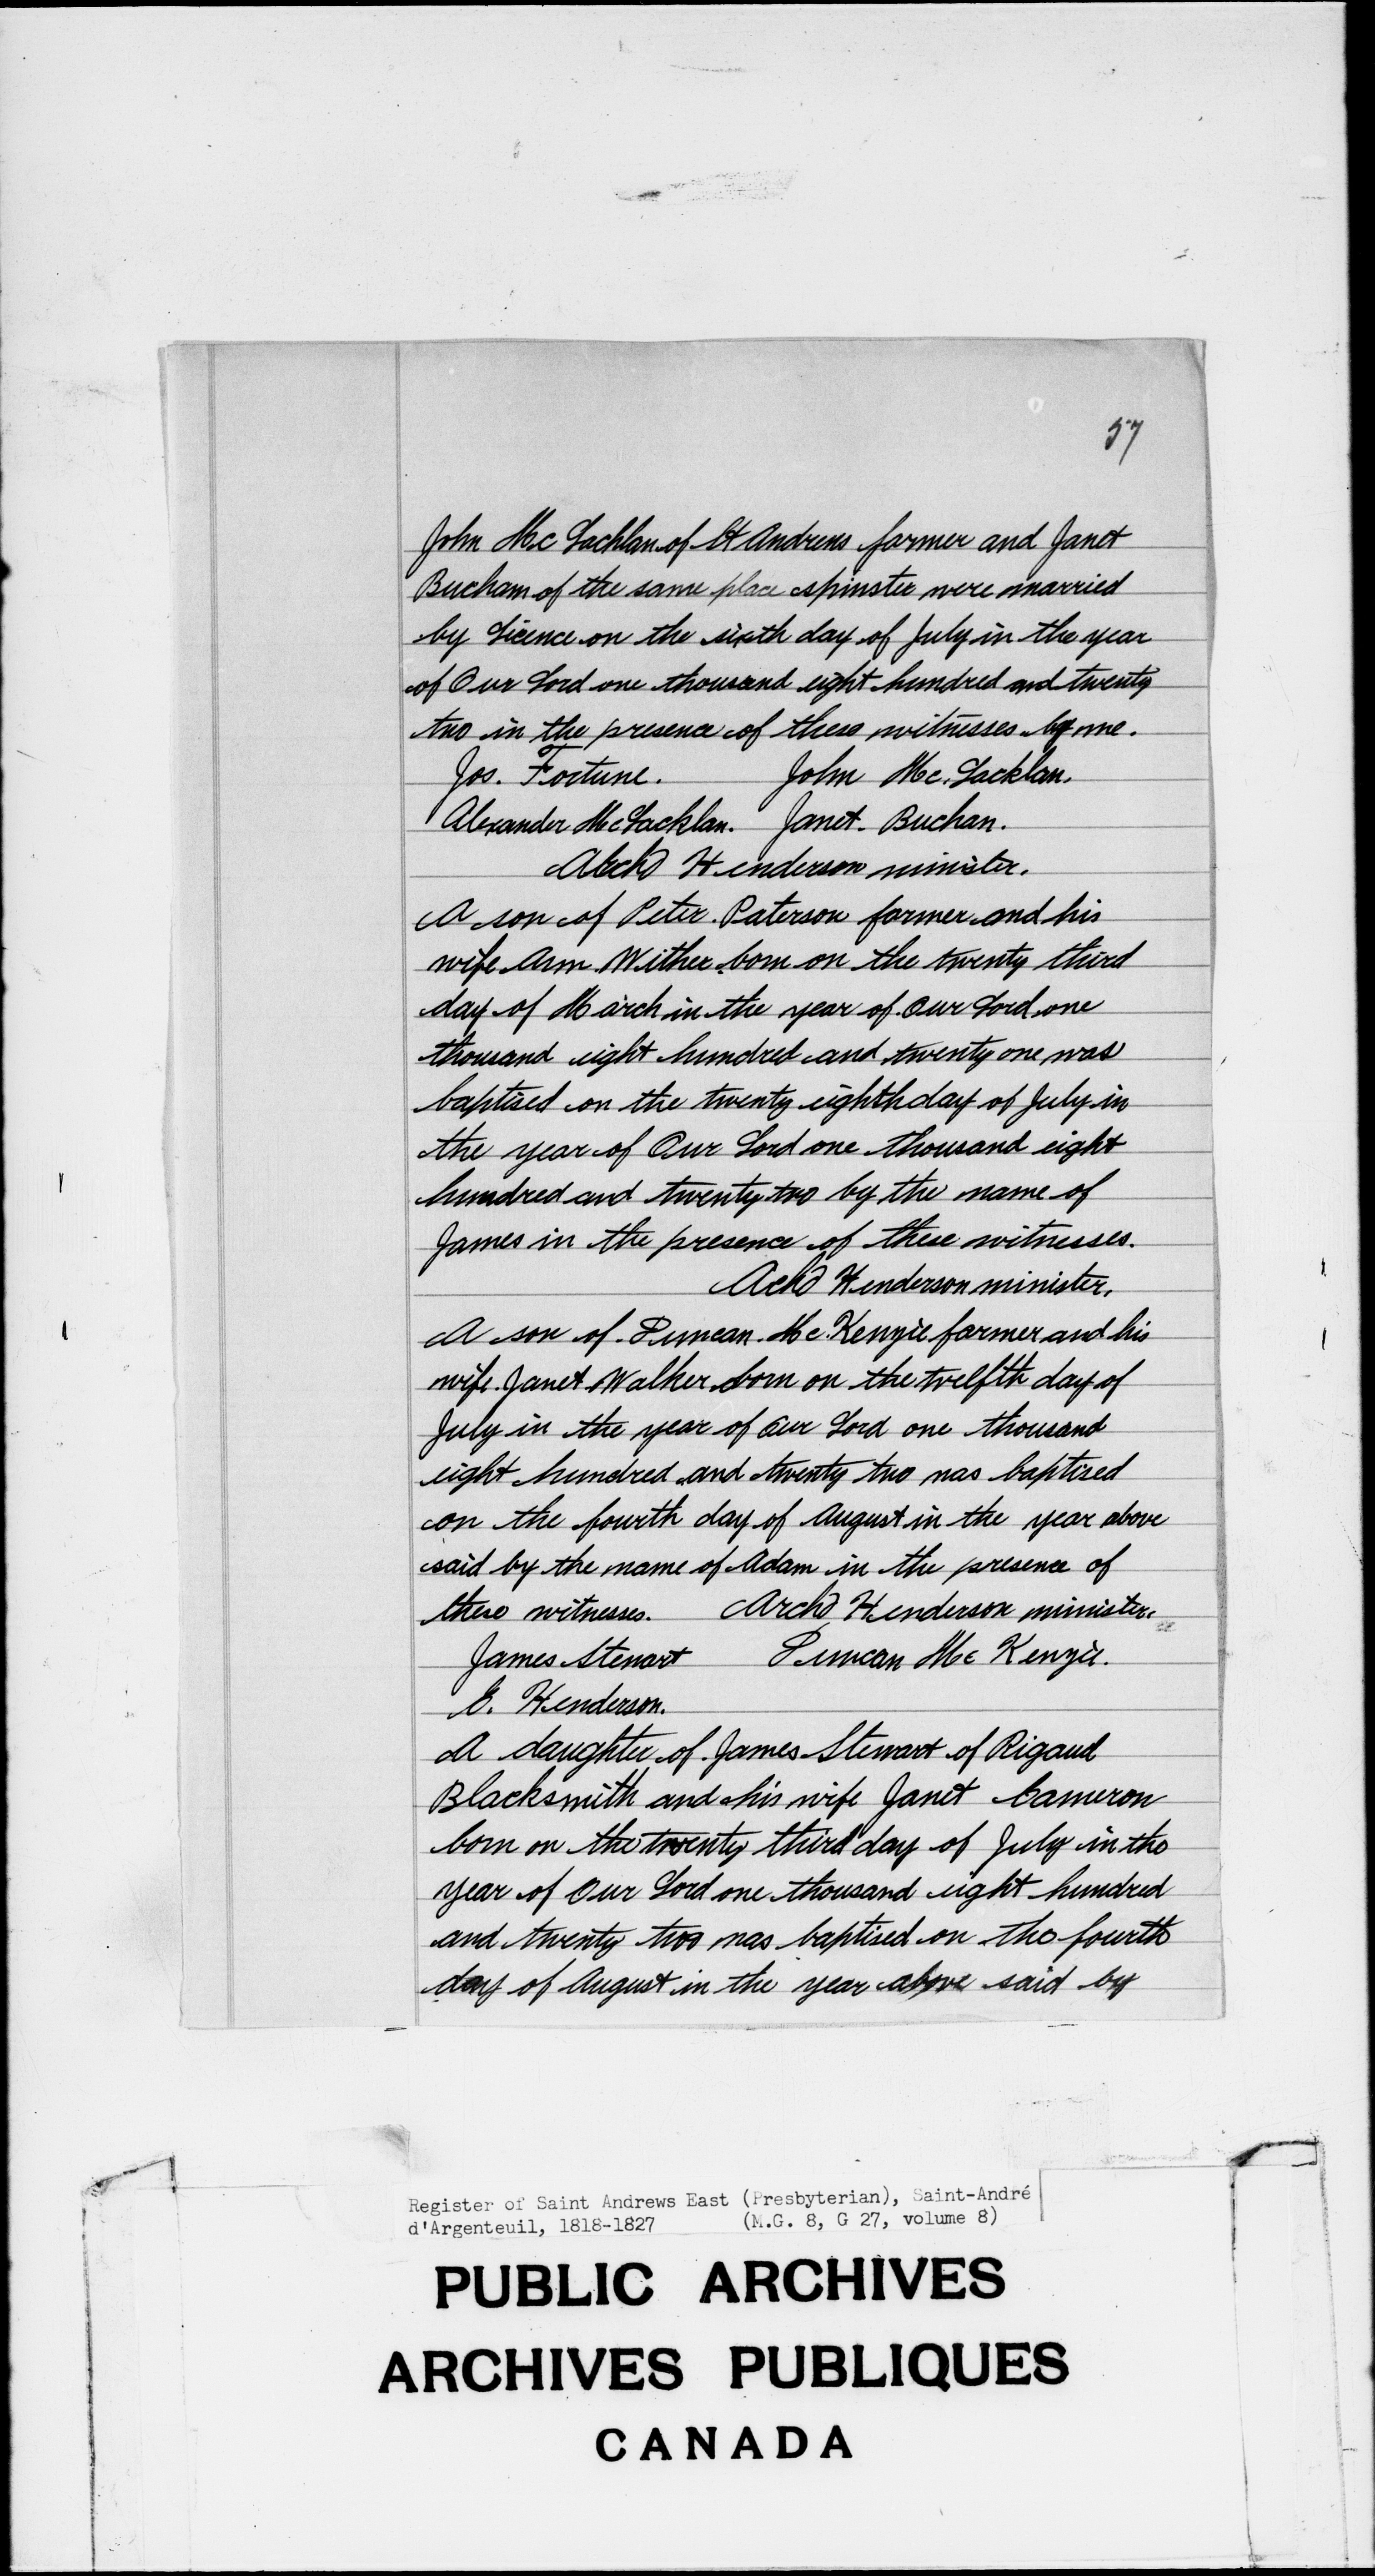 57
John Mc Lachlan of St Andrews farmer and Janet
Bucham of the same place spinster were married
by Licence on the sixth day of July in the year
of Our Lord one thousand eight hundred and twenty
two in the presence of these witnesses by me.
Jos. Fortune. John Mc. Lacklan.
Alexander McLacklan. Janet. Buchan.
Archd Henderson minister.
A son of Peter Paterson farmer and his
wife Ann Wither born on the twenty third
day of March in the year of Our Lord one
thousand eight hundred and twenty one was
baptised on the twenty eighth day of July in
the year of Our Lord one thousand eight
hundred and twenty two by the name of
James in the presence of these witnesses.
Archd Henderson minister.
A son of Duncan Mc. Kenzie farmer and his
wife Janet Walker born on the twelfth day of
July in the year of Our Lord one thousand
eight hundred and twenty two was baptised
on the fourth day of August in the year above
said by the name of Adam in the presence of
these witnesses. Archd Henderson minister.
James Stewart Duncan Mc Kenzie.
E. Henderson.
A daughter of James Stewart of Rigaud
Blacksmith and his wife Janet Cameron
born on the twenty third day of July in the
year of Our Lord one thousand eight hundred
and twenty two was baptised on the fourth
day of August in the year above said by
Register of Saint Andrews East (Presbyterian), Saint-André
d'Argenteuil, 1818-1827 (M.G. 8, G 27, volume 8)
PUBLIC ARCHIVES
ARCHIVES PUBLIQUES
CANADA